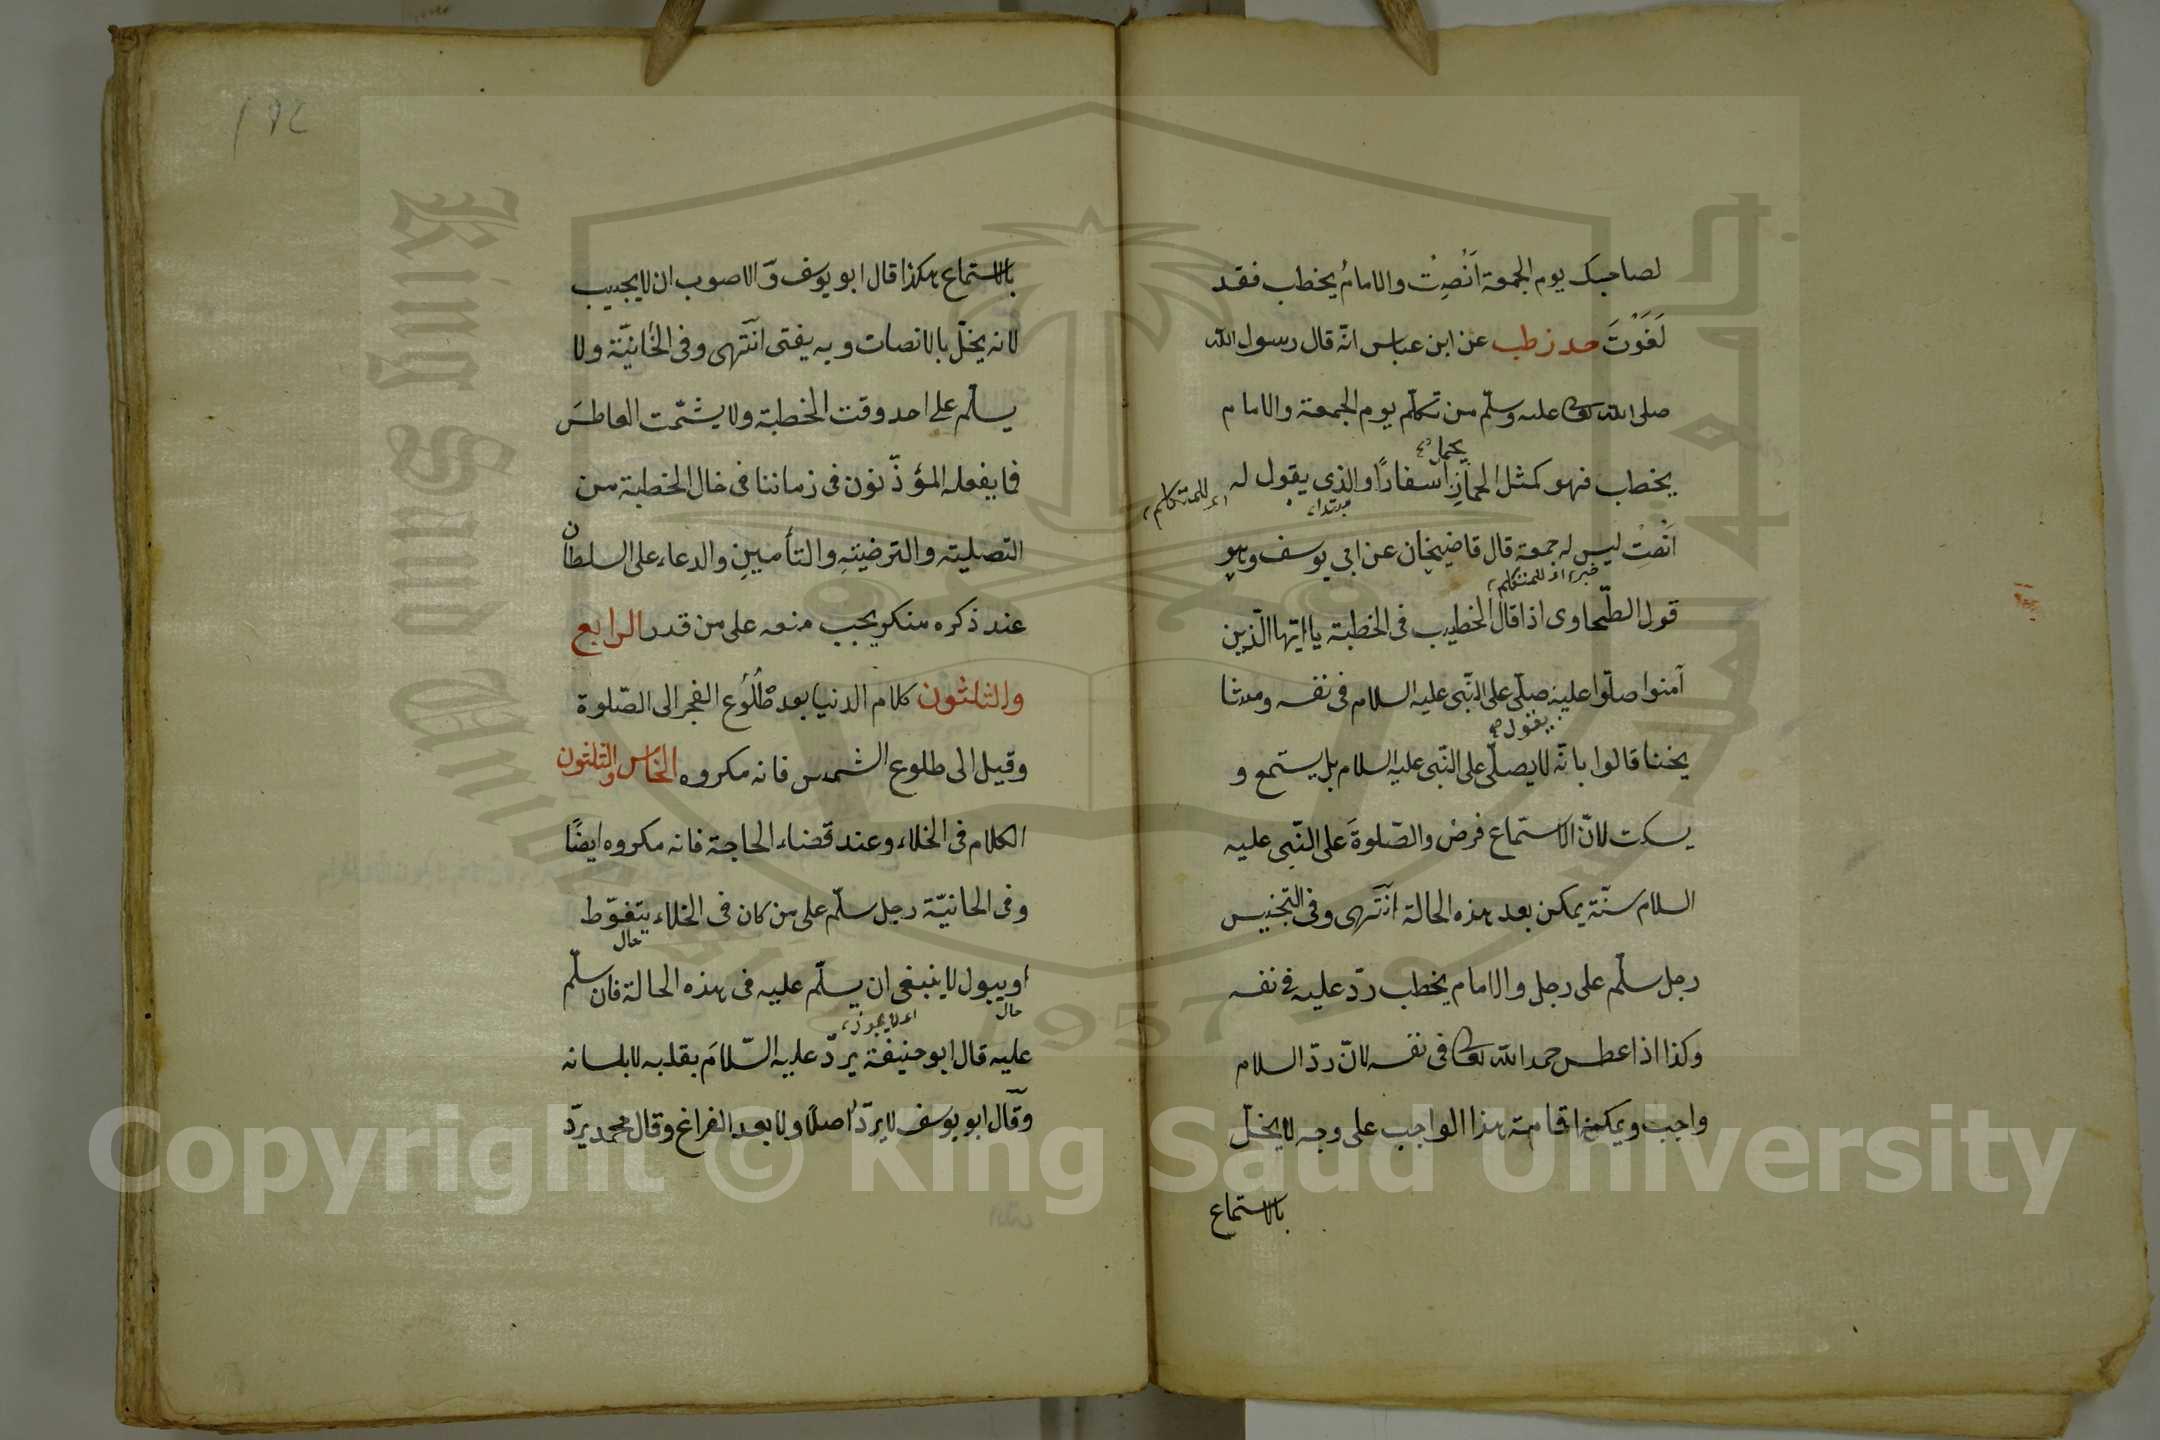 لصاحبك يوم الجمعة اَنْصِتْ والامامُ يخطب فقد
لَغَوْتَ حد ز طب عن ابن عباس انّه قال رسول الله
صلى الله تعالى عليه وسلّم من تكلّم يوم الجمعة والامام
يحمل
يخطب فهو كمثل الحمارِ اسفارًا والذي يقول له
اى للمتكلم
مبتداء
اَنْصِتْ ليس له جمعة قال قاضيخان عن ابي يوسف وهو
خبره اى للمتكلم
قول الطّحاوى اذا قال الخطيب فى الخطبة يا ايّها الّذين
آمنوا صلّوا عليه صلّى على النّبى عليه السلام فى نفسه ومشا
يقول
يخنا قالوا بانّه لا يصلّى على النّبى عليه السلام بل يستمع و
يسكت لانّ الاستماع فرض والصّلوةَ على النّبى عليه
السلام سنّة يمكن بعد هذه الحالة انتهى وفى التجنيس
رجل سلّم على رجل والامام يخطب ردّ عليه فى نفسه
وكذا اذا عطس حمد الله تعالى فى نفسه لانّ ردّ السلام
واجب ويمكنه اقامة هذا الواجب على وجه لا يخلّ
بالاستماع
١٩٢
بالاستماع هكذا قال ابو يوسف والاصوب ان لا يجيب
لانه يخلّ بالانصات وبه يفتى انتهى وفى الخانيّة ولا
يسلّم على احد وقت الخطبة ولا يشمّت العاطسَ
فما يفعله المؤذّنون فى زماننا فى حال الخطبة من
التصلية والترضيَةِ والتأمينِ والدعاء على السلطان
عند ذكره منكر يجب منعه على من قدر الرابع
والثلثون كلام الدنيا بعد طُلُوْع الفجر الى الصّلوة
وقيل الى طلوع الشمس فانه مكروه الخامس والثلثون
الكلام فى الخلاء وعند قضاء الحاجة فانه مكروه ايضًا
وفى الخانيّة رجل سلّم على من كان فى الخلاء يتغوّط
حال
او يبول لا ينبغى ان يسلّم عليه فى هذه الحالة فان سلّم
حال
اى لا يجوز
عليه قال ابو حنيفة يردّ عليه السّلامَ بقلبه لا بلسانه
وقال ابو يوسف لا يردّ اصلًا ولا بعد الفراغ وقال محمد يردّ
King Saud University
1957
Copyright © King Saud University